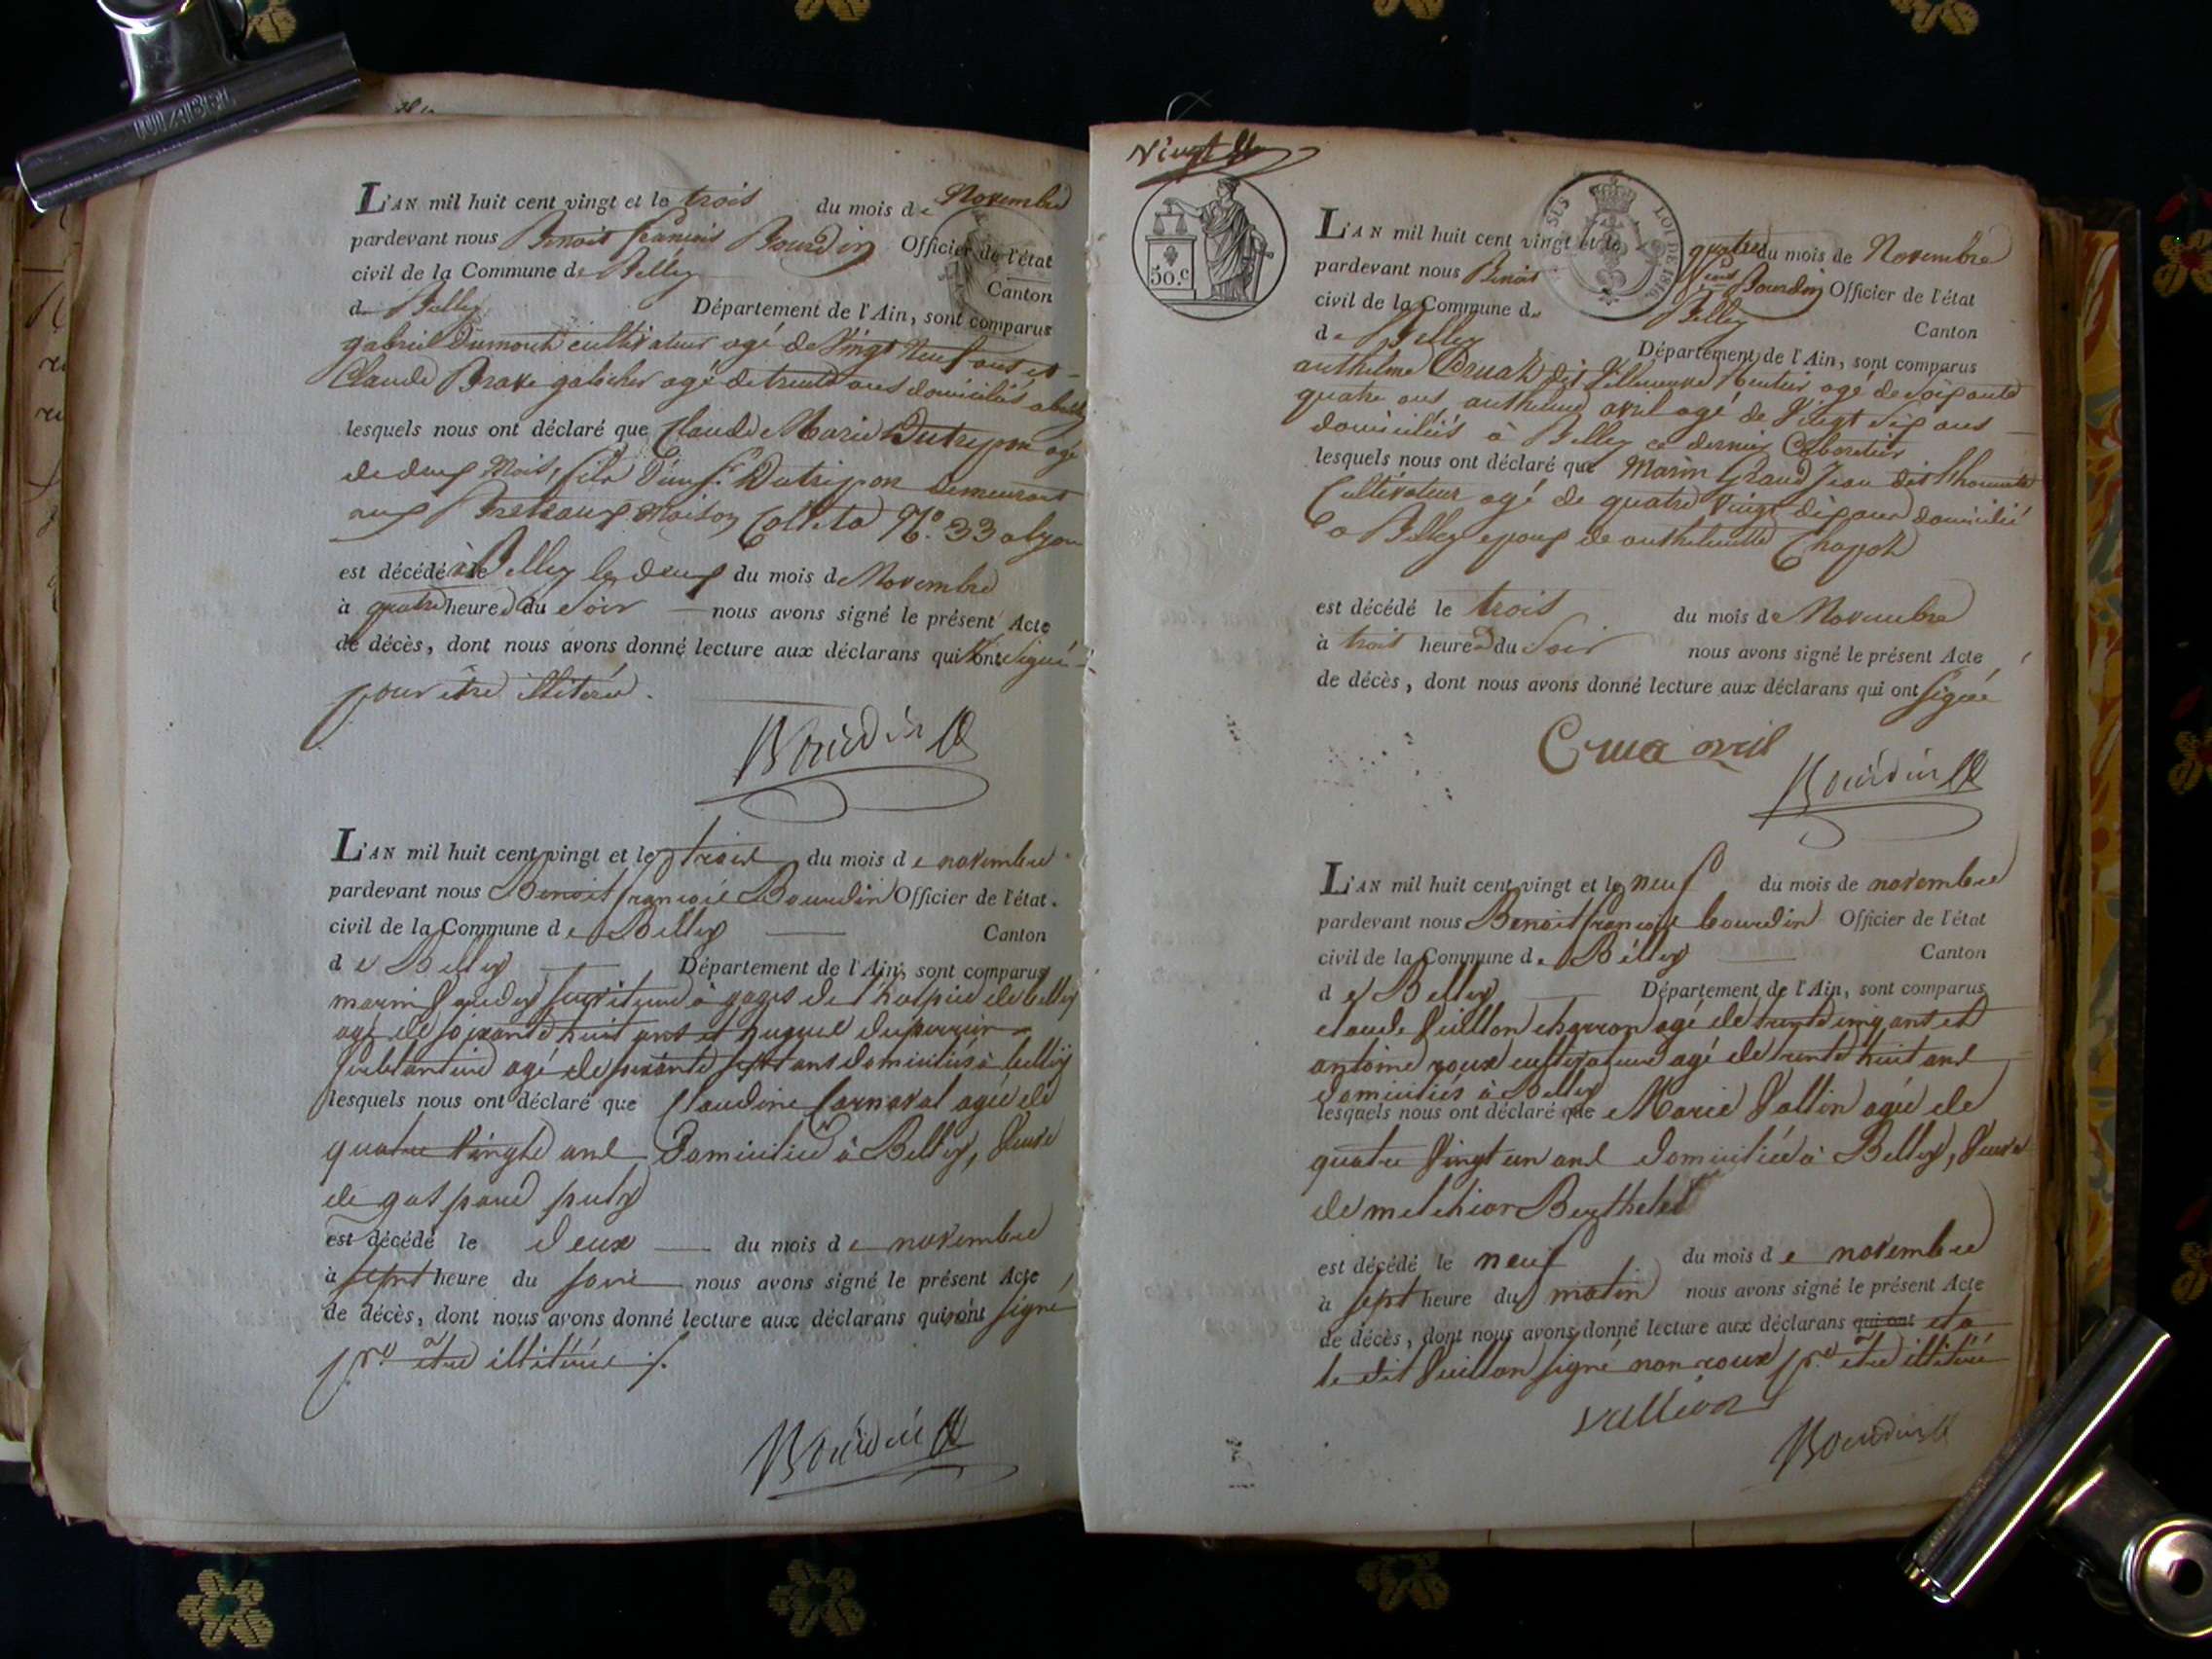 L'AN mil huit cent vingt et le trois du mois de Novembre
pardevant nous Benoit françois Bourdin Officier de l'état
civil de la Commune de Belley Canton
de Belley Département de l'Ain, sont comparus
gabriel Dumont cultivateur agé de Vingt Neuf ans et
Claude Brave galocher agé de trente ans domiciliés a belley
lesquels nous ont déclaré que Claude Marie Dutripon agé
de deux Mois, fils d'un Sr. Dutripon demeurant
aux Breteaux Maison Colleta No. 33 a lyon
est décédé à Belley le deux du mois de Novembre
à quatre heures du soir nous avons signé le présent Acte
de décès, dont nous avons donné lecture aux déclarans qui n'ont signé
pour être illiterés.
Bourdin
L'AN mil huit cent vingt et le trois du mois de novembre
pardevant nous Benoit françois Bourdin Officier de l'état
civil de la Commune de Belley Canton
de Belley Département de l'Ain, sont comparus
marin serviteur à gages de l'hospice de belley
agé de soixante huit ans et duperrier
agé de soixante sept ans domiciliés à belley
lesquels nous ont déclaré que Claudine Carnaval agée de
quatre Vingts ans Domiciliée à Belley, Veuve
de gaspard
est décédé le deux du mois de novembre
à sept heure du soir nous avons signé le présent Acte
de décès, dont nous avons donné lecture aux déclarans qui n'ont signé
pr. être illitérés ./.
Bourdin
Vingt
50.c
LOI DE 1816
L'AN mil huit cent vingt et le quatre du mois de Novembre
pardevant nous Benoit fcois Bourdin Officier de l'état
civil de la Commune de Belley Canton
de Belley Département de l'Ain, sont comparus
anthelme dit Villeneuve Rentier agé de soixante
quatre ans anthelme avril agé de Vingt six ans
domiciliés à Belley ce dernier Cabaretier
lesquels nous ont déclaré que Marin Grand Jean dit
Cultivateur agé de quatre Vingt dix ans domicilié
a Belley epoux de anthelmette Chapot
est décédé le trois du mois de Novembre
à trois heures du Soir nous avons signé le présent Acte
de décès, dont nous avons donné lecture aux déclarans qui ont signé
avril
Bourdin
L'AN mil huit cent vingt et le neuf du mois de novembre
pardevant nous Benoit françois bourdin Officier de l'état
civil de la Commune de Belley Canton
de Belley Département de l'Ain, sont comparus
claude Vuillon charron agé de trente cinq ans et
antoine roux cultivateur agé de trente huit ans
domiciliés à Belley
lesquels nous ont déclaré que Marie Vallin agée de
quatre Vingt un ans domiciliée à Belley, Veuve
de melchior Berthelet
est décédé le neuf du mois de novembre
à sept heure du matin nous avons signé le présent Acte
de décès, dont nous avons donné lecture aux déclarans qui ont et a
le dit Vuillon signé non roux pr. être illitéré
Bourdin